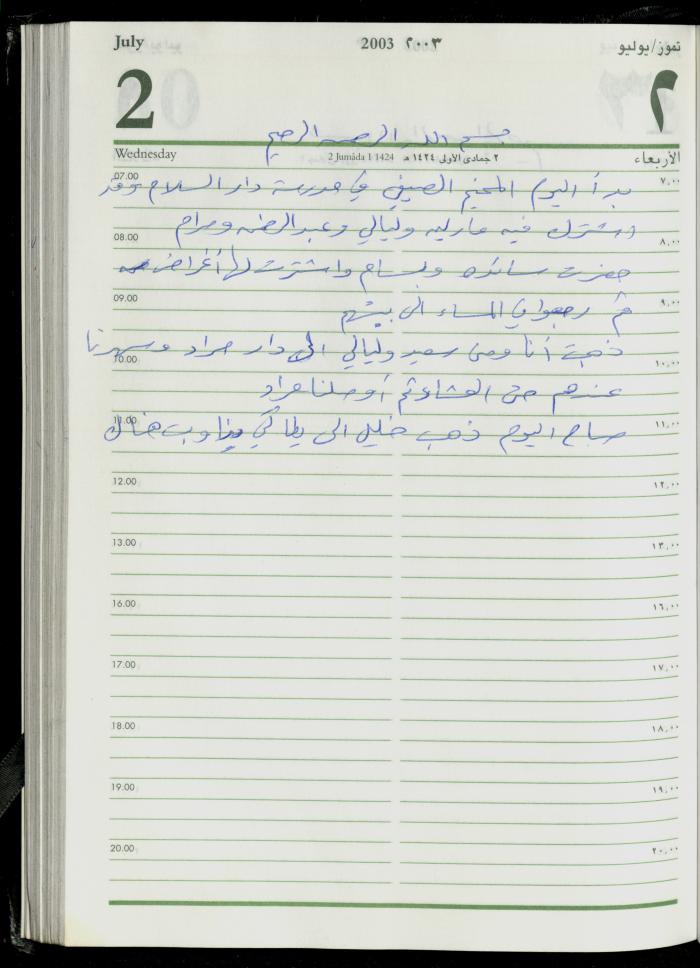 July 2003 ٢٠٠٣ تموز/يوليو
2 ٢
بسم الله الرحمن الرحيم
Wednesday 2 Jumâda I 1424 ٢ جمادى الأولى ١٤٢٤ هـ الأربعاء
07.00 ٧,٠٠
بدأ اليوم المخيم الصيفي في مدرسة دار السلام وقد
اشترك فيه مارليه وليالي وعبد الرحمن ومرام
08.00 ٨,٠٠
حضرت سائده وبسام واشترت لها أغراض
09.00 ٩,٠٠
ثم رجعوا في المساء الى بيتهم
ذهبت أنا ومن سعيد وليالي الى دار مراد وسهرنا
10.00 ١٠,٠٠
عندهم حتى العشاء ثم أوصلنا مراد
11.00 ١١,٠٠
صباح اليوم ذهب خليل الى يطا لكي يداوب هناك
12.00 ١٢,٠٠
13.00 ١٣,٠٠
16.00 ١٦,٠٠
17.00 ١٧,٠٠
18.00 ١٨,٠٠
19.00 ١٩,٠٠
20.00 ٢٠,٠٠